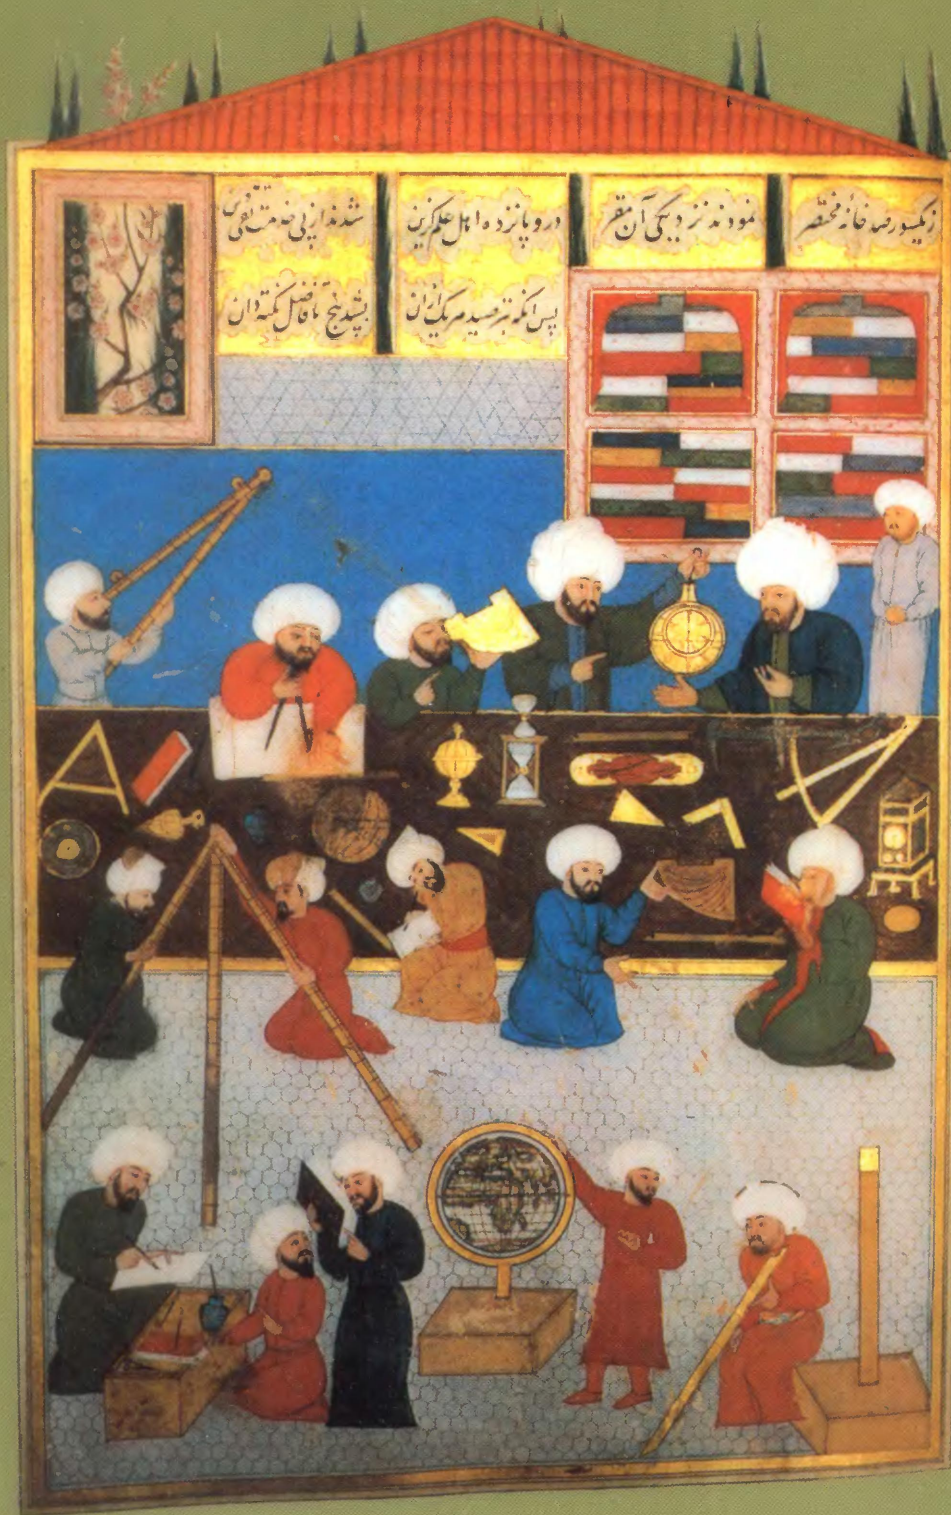 ز یکسو رصد خانهٔ مختصر نمودند نزدیکی آن مقر
درو پانزده اهل علم گزین شدند از پی خدمت
پس آنکه ترصید هر یک ازان بشد پنج تا فاضل نکته دان